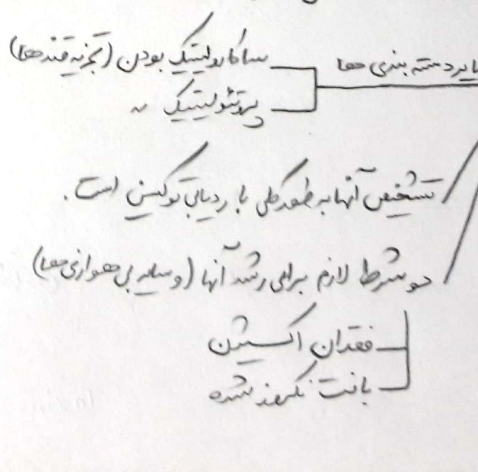 سایر دسته بندی ها
ساکارولیتیک بودن (تجزیه قندها)
پروتئولیتیک ~
تشخیص آنها به طور کلی با ردیابی توکسین است.
دو شرط لازم برای رشد آنها (و سایر بی هوازی ها)
فقدان اکسیژن
بافت نکروز شده